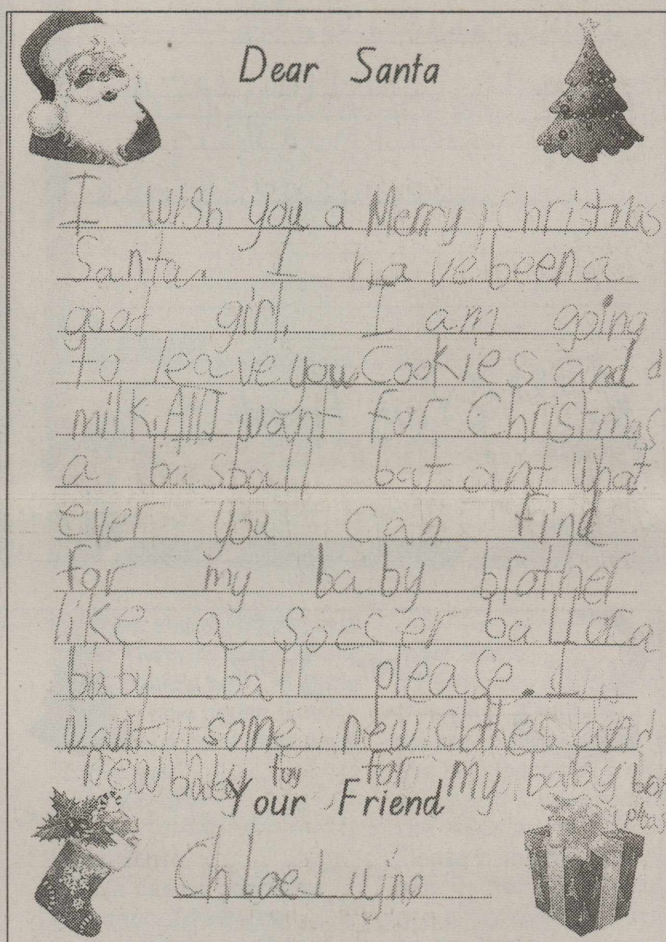 Dear Santa
I wish you a Merry Christmas
Santa. I have been a
good girl. I am going
to leave you Cookies and
milk. All I want for Christmas
a basball bat ant what
ever you can find
for my baby brother
like a soccer ball or a
baby ball please. I
want some new clothes and
new baby toy for my baby
Your Friend
Chloe Lujno